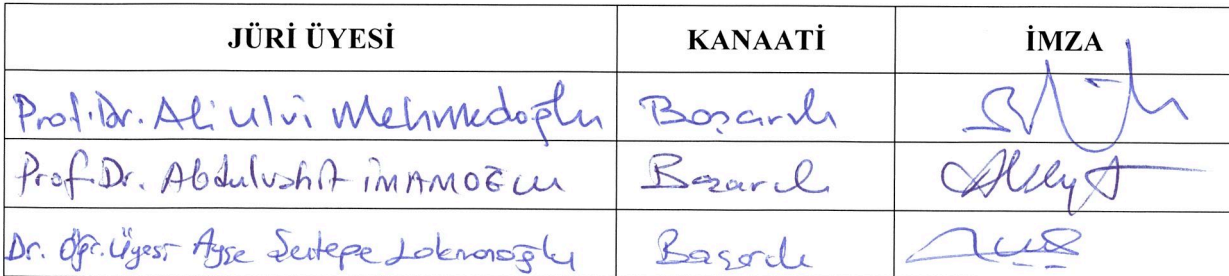 JÜRİ ÜYESİ KANAATİ İMZA
Prof. Dr. Ali Ulvi Mehmedoğlu Başarılı
Prof. Dr. Abdulvahit İMAMOĞLU Başarılı
Dr. Öğr. Üyesi Ayşe Şentepe Lokmanoğlu Başarılı